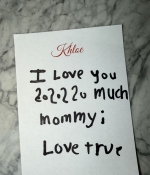 Khloe
I Love you
20.20.220 much
mommy;
Love true